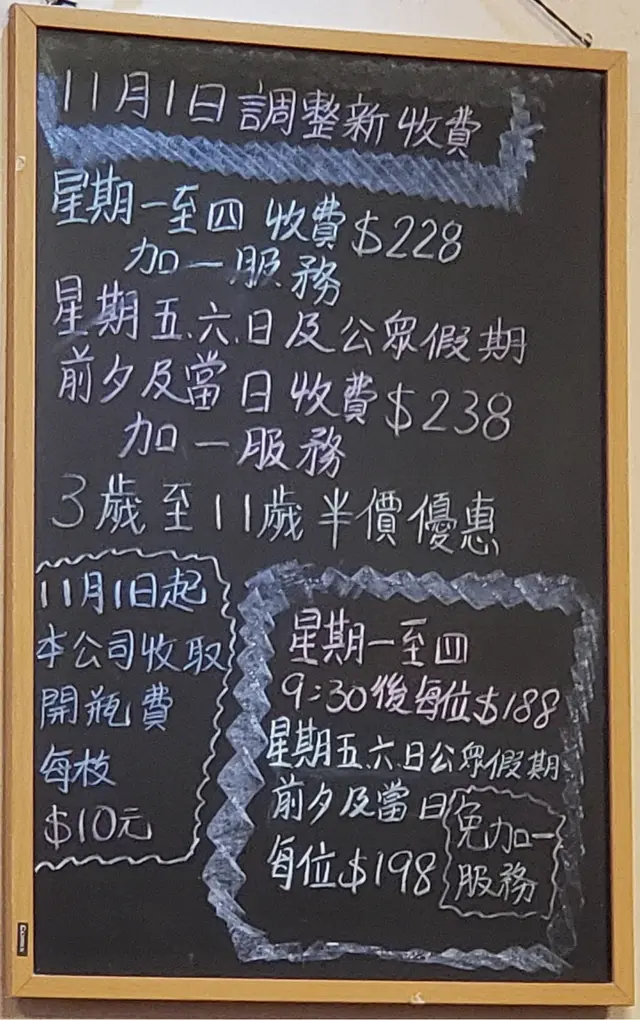 11月1日調整新收費
星期一至四 收費$228
加一服務
星期五.六.日及公眾假期
前夕及當日收費$238
加一服務
3歲至11歲半價優惠
11月1日起
本公司收取
開瓶費
每枝
$10元
星期一至四
9:30後每位$188
星期五.六.日公眾假期
前夕及當日
每位$198
免加一
服務